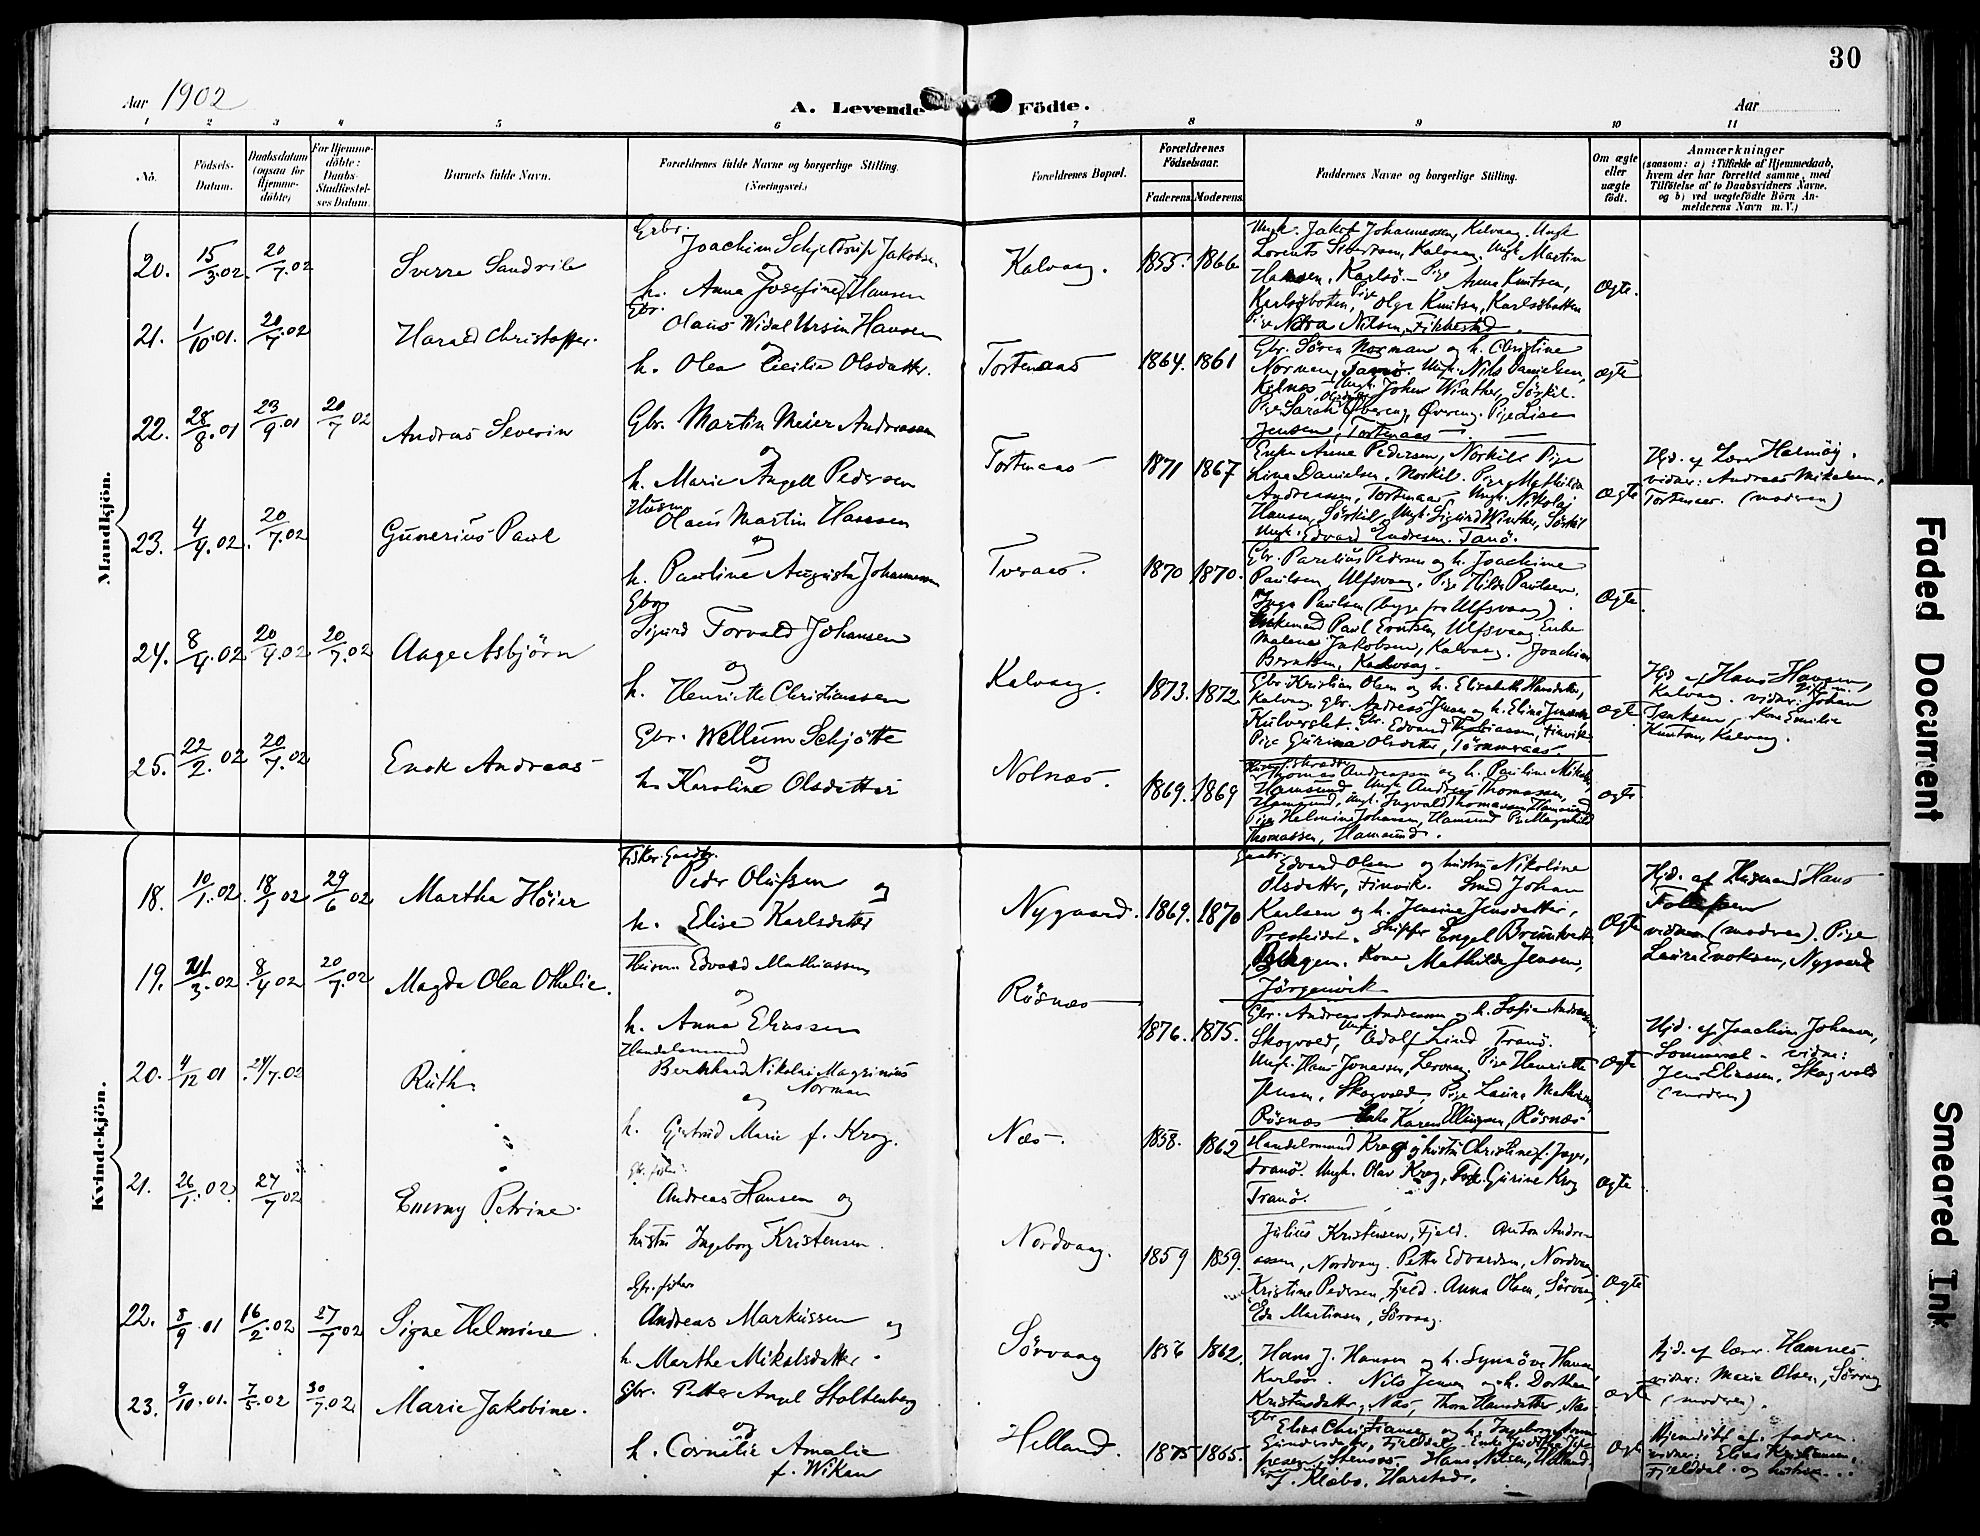 30
Aar 1902
A. Levende Födte.
Aar
1 2 3 4 5 6 7 8 9 10 11
No.
Födsels-Datum.
Daabsdatum (ogsaa for Hjemme-döbte)
For Hjemme-döbte: Daabs-Stadfæstel-ses Datum.
Barnets fulde Navn.
Forældrenes fulde Navne og borgerlige Stilling.
(Næringsvei.)
Forældrenes Bopæl.
Forældrenes Födselsaar.
Faderens Moderens
Faddernes Navne og borgerlige Stilling.
Om ægte eller uægte födt.
Anmærkninger
(saasom: a) i Tilfælde af Hjemmedaab,
hvem der har forrettet samme, med
Tilföielse af to Daabsvidners Navne.
og b) ved uægtefödte Börn An-
melderens Navn m. V.)
Mandkjön.
20. 15/3.02. 20/7.02 Sverre
Joachim Schjeldrup Jakobsen
og
h. Anna Josefine Hansen
Kalvaag. 1855. 1866
Ungk. Jakob Johannessen, Kalvaag. Ungk
Kalvaag. Ungk Martin
Hansen, Karlsö. Pige Anna Knutsen,
Pige Olga Knutsen,
Nilsen,
Ægte.
21. 1/10.01. 20/7.02 Harald Christoffer.
Gbr.
Olaus Widal Ursin Hansen
og
h. Olea Cecilia Olsdatter.
Tortenaas 1864. 1861
Gbr. Sören Norman og h. Christine
Norman, Tranö. Ungk. Nils Danielsen,
Ungk. Johan Winther,
Pige Sarah Pige Lise
Jensen, Tortenaas
ægte
22. 28/8.01 23/9.01 20/7 02 Andreas Severin
Gbr. Martin Meier Andreassen
og
h. Marie Angell Pedersen
Tortenaas 1871 1867
Enke Anne Pedersen, Norkil. Pige
Lina Danielsen, Norkil. Pige Mathilde
Andreassen, Tortenaas, Ungk. Nikolai
Hansen, Sörkil, Ungk. Sigurd Winther, Sörkil
Ungk. Edvard Endresen. Tranö.
ægte
Hjd. af Lærer Halmöy.
vidner: Andreas Mikalsen,
Tortenaas. (moderen)
23. 4/4.02. 20/7.02 Gunerius Paul
Husm
Olaus Martin Hansen
og
h. Pauline Augusta Johannessen
Tveraas. 1870 1870.
Gbr. Parelius Pedersen og h. Joachime
Paulsen, Ulfsvaag, Pige Hilda Paulsen.
Inga Paulsen (begge fra Ulfsvaag).
Paul Ulfsvaag. Enke
Malene Jakobsen, Kalvaag. Joachim
Berntsen, Kalvaag.
Ægte.
24. 8/4.02 20/4.02 20/7.02 Aage Asbjörn
Gbr
Sigurd Torvald Johansen
og
h. Henriette Christianssen
Kalvaag. 1873. 1872.
Gbr. Kristian Olsen og h. Elisabeth Hansdatter,
Kalvaag. Gbr. Andreas Jensen og h. Eline
Gbr. Edvard Finvik.
Pige Gurina Olsdatter,
ægte
Hjd af Hans Hansen,
Kalvaag. vidner: Johan
Isaksen, Kone Emilie
Knutsen, Kalvaag.
25. 22/2.02 20/7.02 Enok Andreas
Gbr. Wellum Schjötte
og
h. Karoline Olsdatter
Nolnæs. 1869. 1869
Thomas Andreassen og h. Pauline
Hamsund. Ungk. Andreas Thomassen,
Hamsund, Ungk. Ingvald Thomassen, Hamsund
Pige Helmine Johansen, Hamsund Pige
Thomassen, Hamsund.
ægte
Kvindekjön.
18. 10/1.02 18/1 02 29/6 02 Martha Höier
Fisker. Gaardbr.
Peder Olufsen og
h. Elise Karlsdatter
Nygaard. 1869. 1870
Gaardbr. Edvard Olsen og hustru Nikoline
Olsdatter, Finvik. Smed Johan
Karlsen og h. Jensine Jensdatter,
Presteidet. Skipper Engel
Bergen. Kone Mathilde Jensen,
Jörgenvik
Ægte
Hjd. af Husmand Hans
Tollefsen
vidner (moderen). Pige
Laura Enoksen, Nygaard
19. 3.02 8/4 02 20/7.02 Magda Olea Othelie.
Husm. Edvard Mathiassen
og
h. Anna Eliassen
Rösnæs 1876. 1875.
Gbr. Andreas Andreassen og h. Sofie Andreassen,
Skogvold, Ungk. Adolf Lind Tranö.
Ungk. Hans Jonassen, Pige Henriette
Jensen, Skogvold, Pige Laura
Rösnæs Karen Ellingsen, Rösnæs
Ægte
Hjd. af Joachim Johansen,
Sommersel - vidner:
Jens Eliassen, Skogvold
(moderen)
20. 4/12 01 24/7.02 Ruth
Handelsmand
Bernhard Nikolai Magrinius
Norman
og
h. Gjertrud Marie f. Krog.
Næs. 1858. 1862
Handelsmand Krog og hustru Christine f. Jæger,
Tranö. Ungk. Olav Krog, Frk. Gurine Krog
Tranö.
Ægte.
21. 26/1.02. 27/7 02 Emmy Petrine.
Gbr. fisker
Andreas Hansen og
hustru Ingeborg Kristensen.
Nordvaag. 1859 1859.
Julius Kristensen, Fjeld. Anton Andre-
assen, Nordvaag. Petter Edvardsen, Nordvaag
Kristine Pedersen, Fjeld. Anna Olsen, Sörvaag
Eda Martinsen, Sörvaag.
Ægte
22. 8/9.01 16/2.02 27/7 02 Signe Helmine.
Gbr. fisker
Andreas Markussen og
h. Marthe Mikalsdatter.
Sörvaag 1856 1862.
Hans J. Hansen og h. Synnöve Hansen
Karlsö. Nils Jensen og h. Dorthea
Kristensdatter, Næs, Thora Hansdatter, Næs
ægte
Hjd. af lærer. Hamnes.
vidner: Marie Olsen, Sörvaag
(moderen).
23. 9/10.01. 7/5.02 30/7.02 Marie Jakobine.
Gbr. Petter Angel Stoltenberg
og
h. Cornelie Amalie
f. Wikan
Helland. 1875 1865.
Gbr. Elias Christiansen og h. Ingeborg Anna
Gundersdatter, Fjelddal. Enke
Hans Nilsen, Helland.
J. Klæbo. Harstad.
Ægte
Hjemdöbt af faderen.
vidner: Elias Kristiansen,
Fjelddal og hustru...
Faded Document
Smeared Ink